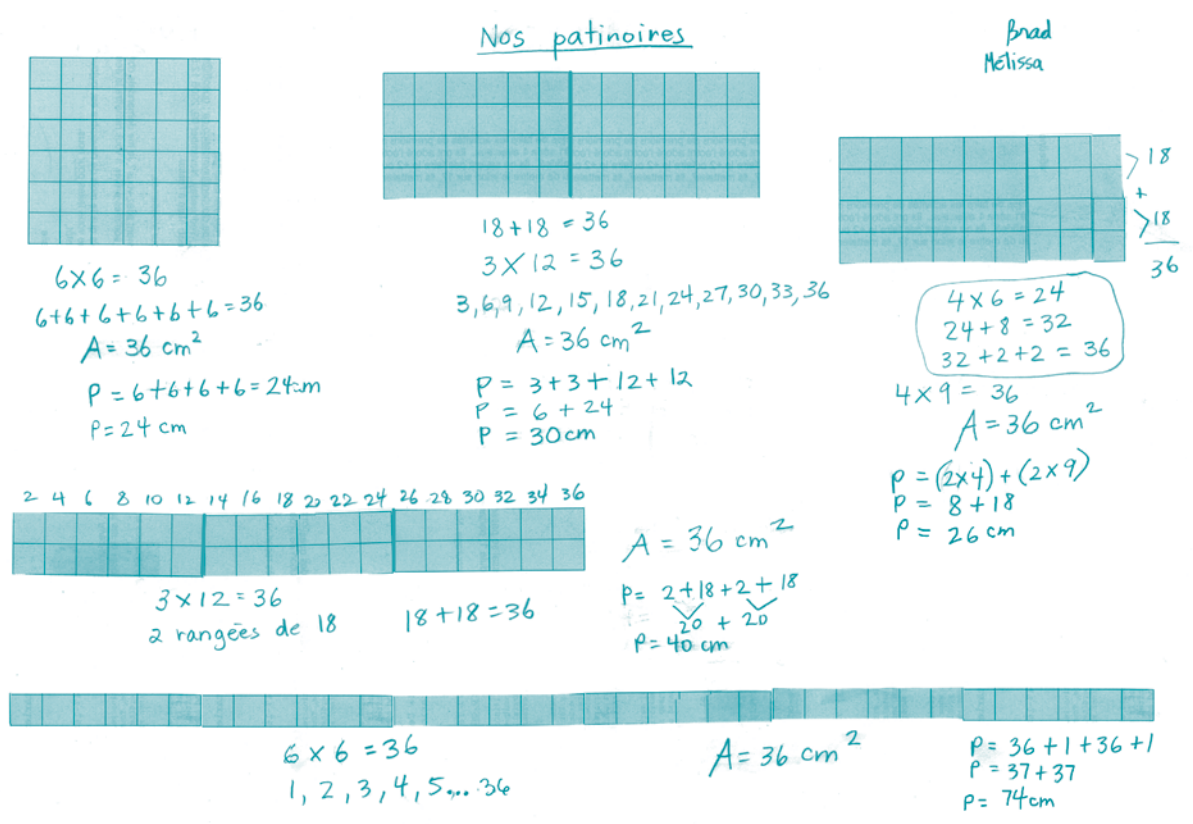 Nos patinoires
Brad
Mélissa
6x6 = 36
6+6+6+6+6+6=36
A = 36 cm²
P = 6+6+6+6=24cm
P=24 cm
18+18 = 36
3 X 12 = 36
3, 6, 9, 12, 15, 18, 21, 24, 27, 30, 33, 36
A = 36 cm²
P = 3+3+12+12
P = 6 + 24
P = 30cm
> 18
+
> 18
36
4 x 6 = 24
24 + 8 = 32
32 + 2 + 2 = 36
4 x 9 = 36
A = 36 cm²
P = (2x4) + (2x9)
P = 8 + 18
P = 26 cm
2 4 6 8 10 12 14 16 18 20 22 24 26 28 30 32 34 36
3 x 12 = 36
2 rangées de 18
18+18=36
A = 36 cm²
P= 2+18+2+18
20 + 20
P= 40 cm
6 x 6 = 36
1, 2, 3, 4, 5... 36
A= 36 cm²
P= 36 +1 +36 +1
P = 37+37
P= 74cm